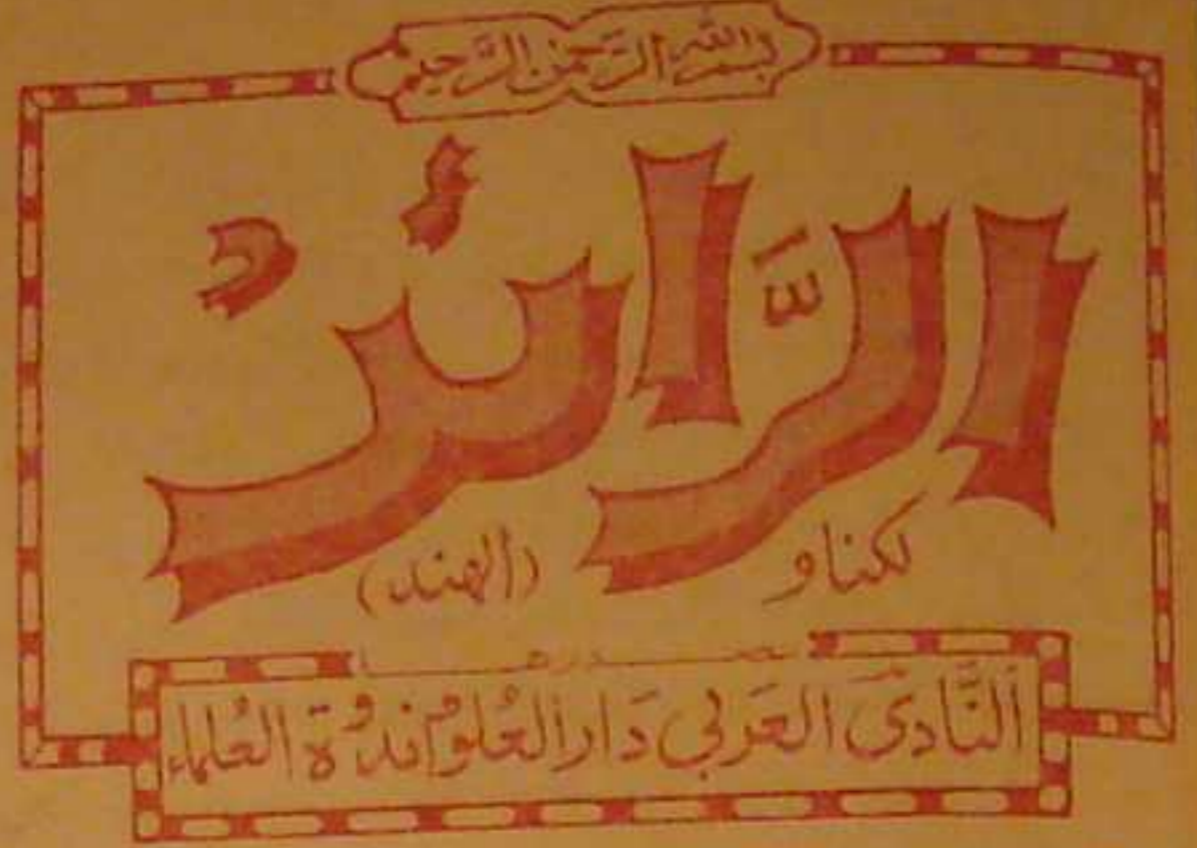 بِسْمِ اللهِ الرَّحْمٰنِ الرَّحِيْمِ
الرَّائِدُ
لكناؤ (الهند)
يصدرها
النَّادِى العَرَبي دَارالعُلوم نَدْوَة العُلماء